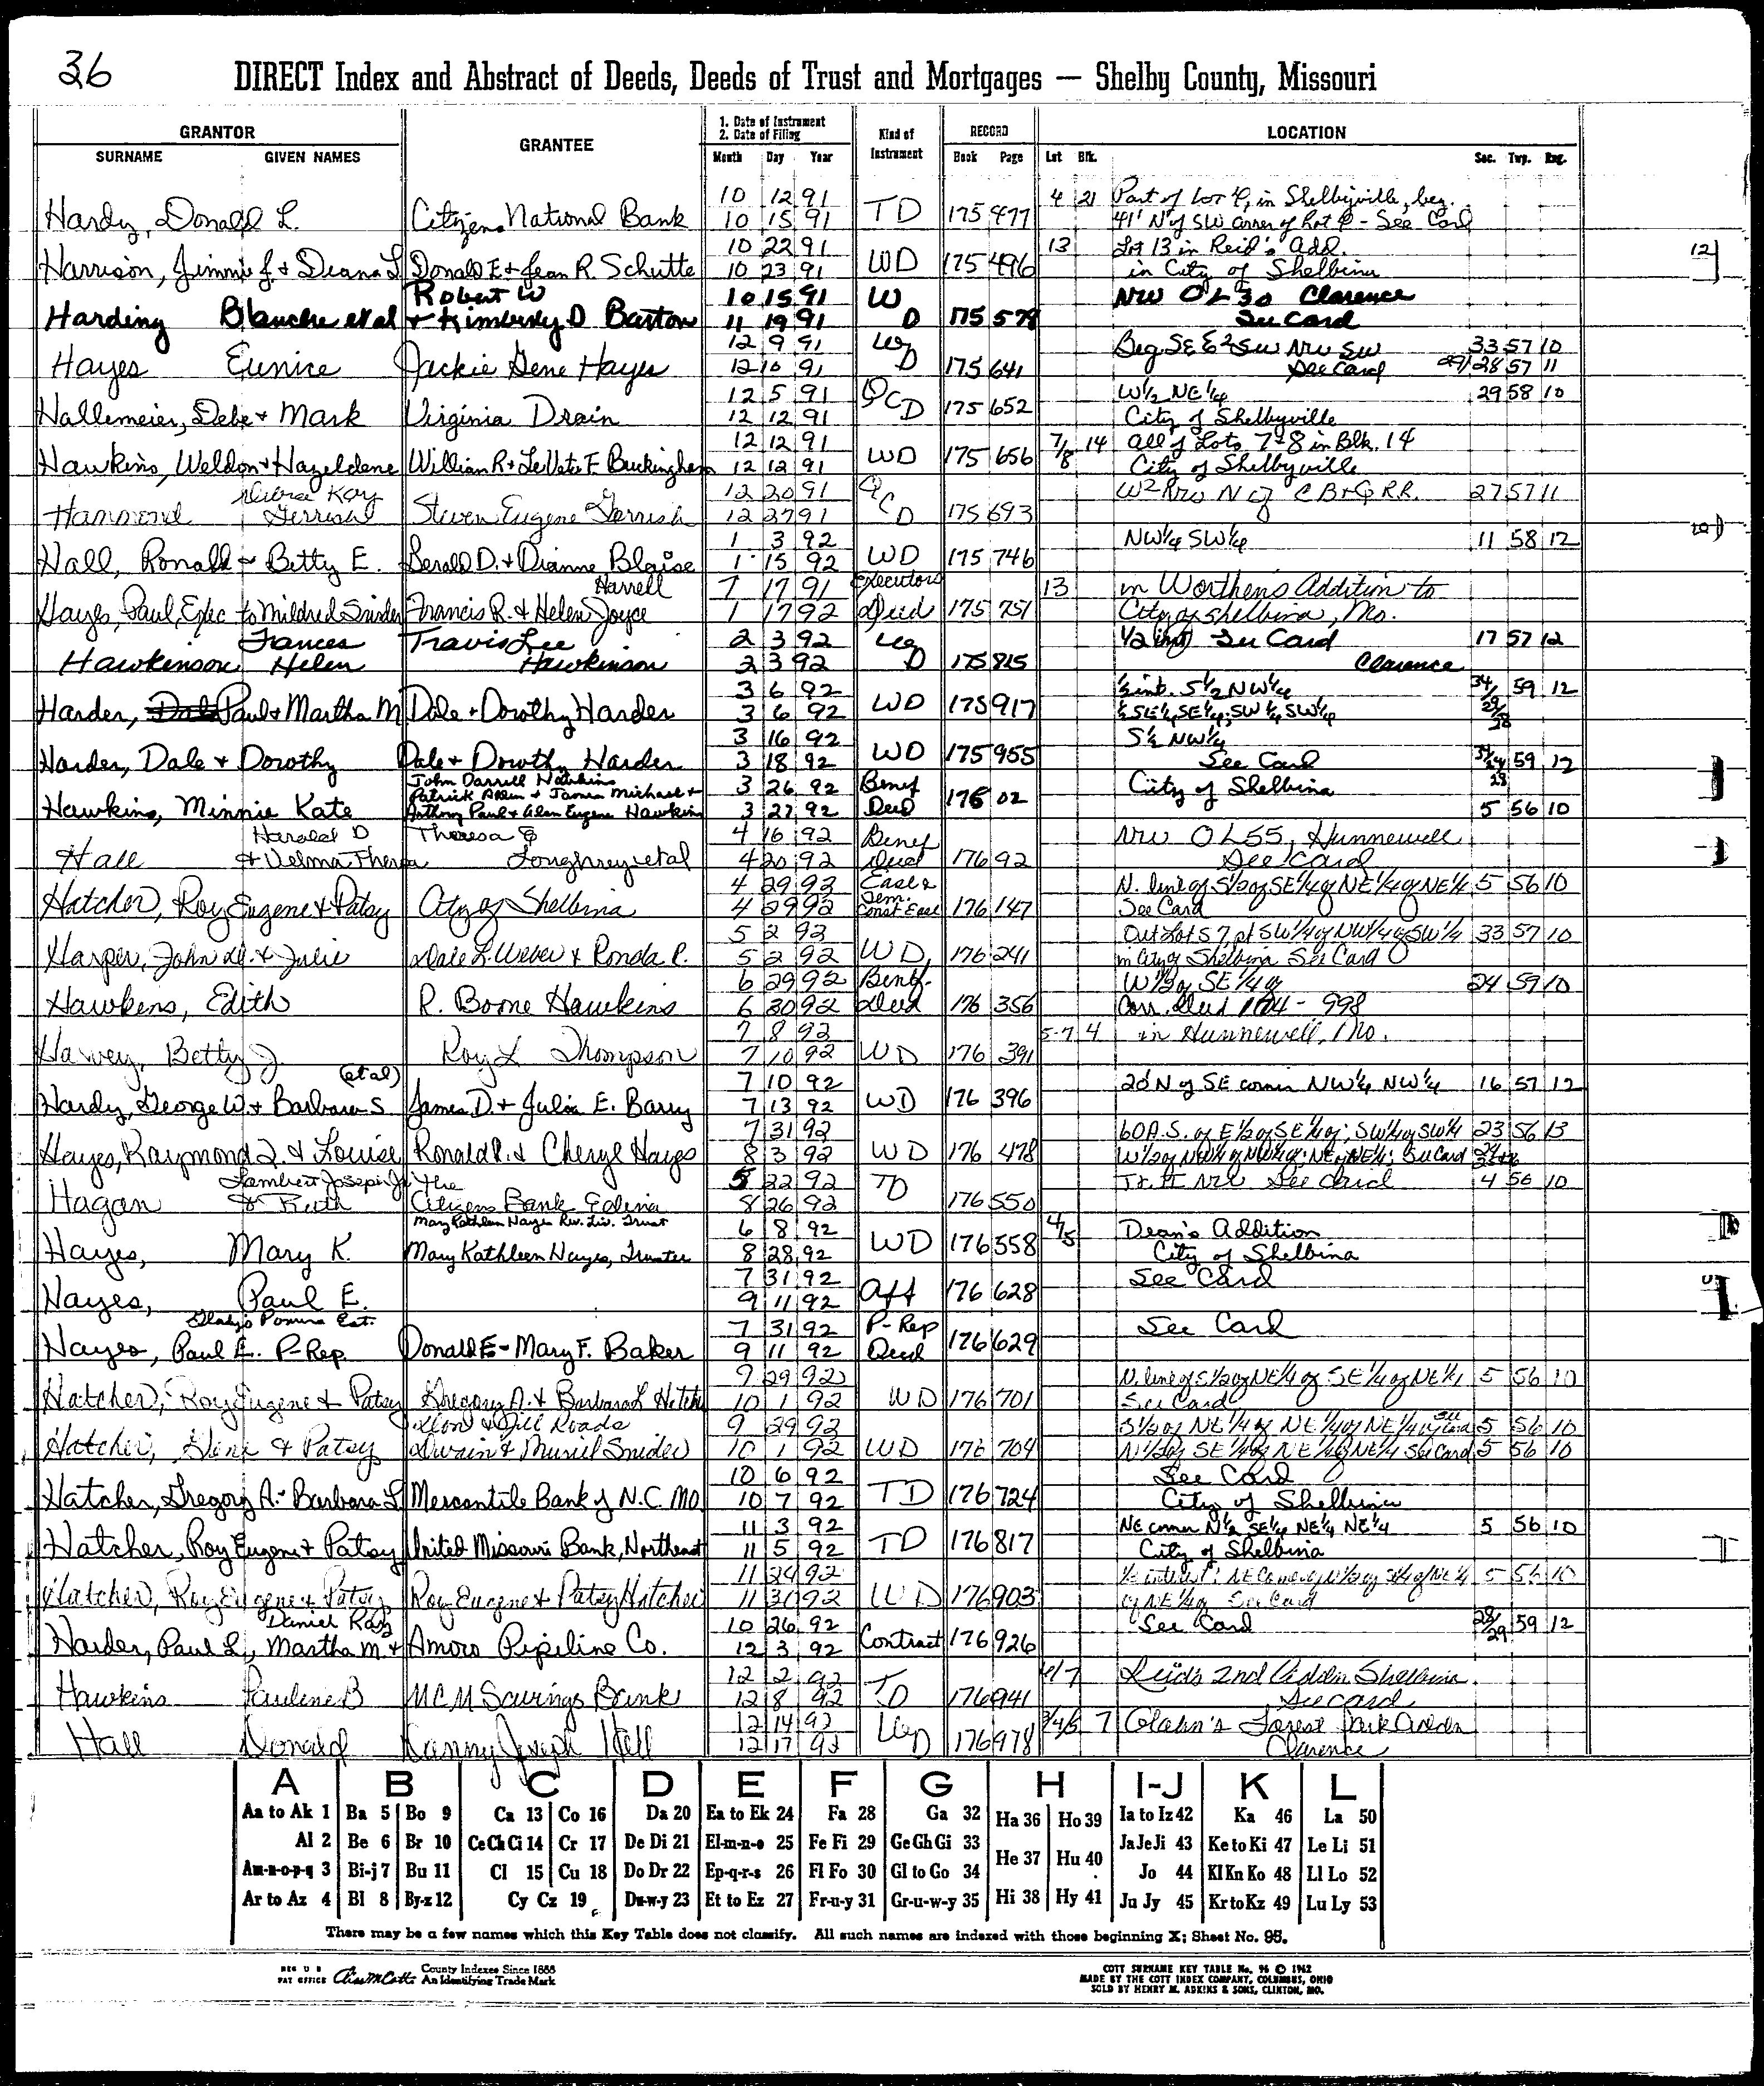 36
DIRECT Index and Abstract of Deeds, Deeds of Trust and Mortgages — Shelby County, Missouri
GRANTOR GRANTEE 1. Date of Instrument 2. Date of Filing Kind of Instrument RECORD LOCATION
SURNAME GIVEN NAMES Month Day Year Book Page Lot Blk. Sec. Twp. Rng.
10 12 91 4 21 Part of Lot 4, in Shelbyville, beg.
Hardy, Donald L. Citizens National Bank 10 15 91 TD 175 477 41' N of SW corner of Lot 4 - See Card
10 22 91 13 Lot 13 in Reid's Add.
Harrison, Jimmie J. & Deana L Donald E & Jean R. Schutte 10 23 91 WD 175 496 in City of Shelbina
Robert W 10 15 91 W NW OL 30 Clarence
Harding Blanche et al & Kimberly D Barton 11 19 91 D 175 579 See Card
12 9 91 W Beg SE E2 SW NW SW 33 57 10
Hayes Eunice Jackie Gene Hayes 12 10 91 D 175 641 See Card 28 57 11
12 5 91 W 1/2 NE 1/4 29 58 10
Hallemeier, Debe & Mark Virginia Drain 12 12 91 QCD 175 652 City of Shelbyville
12 12 91 7/8 14 All of Lots 7 & 8 in Blk. 14
Hawkins, Weldon & Hazeldene William R & LeVeta F Buckingham 12 12 91 WD 175 656 City of Shelbyville
Kay 12 20 91 QC W2 NW N of C B & Q R.R. 27 57 11
Hammond Gerrish Steven Eugene Gerrish 12 27 91 D 175 693
1 3 92 NW 1/4 SW 1/4 11 58 12
Hall, Ronald & Betty E. Gerald D. & Dianne Blaise 1 15 92 WD 175 746
Harrell 7 17 91 Executors 13 in Worthen's Addition to
Hayes, Paul, Exec to Mildred Snider Francis R. & Helen Joyce 1 17 92 Deed 175 751 City of Shelbina, Mo.
Frances Travis Lee 2 3 92 W 1/2 int See Card 17 57 12
Hawkinson Helen Hawkinson 2 3 92 D 175 815 Clarence
3 6 92 1/2 int. S 1/2 NW 1/4 34 59 12
Harder, Paul & Martha M Dale & Dorothy Harder 3 6 92 WD 175 917 SE 1/4, SE 1/4, SW 1/4 SW 1/4
3 16 92 S 1/2 NW 1/4
Harder, Dale & Dorothy Dale & Dorothy Harder 3 18 92 WD 175 955 See Card 59 12
John Darrell Hawkins
Patrick Allen & James Michael & 3 26 92 Benef City of Shelbina
Hawkins, Minnie Kate Anthony Paul & Alan Eugene Hawkins 3 27 92 Deed 176 02 5 56 10
Harold D Theresa E 4 16 92 Benef NW OL 55, Hunnewell
Hall & Velma Theresa Loughrey et al 4 20 92 Deed 176 92 See Card
4 29 92 Ease & N. line of S 1/2 of SE 1/4 of NE 1/4 of NE 1/4 5 56 10
Hatcher, Roy Eugene & Patsy City of Shelbina 4 29 92 Tem. Const Ease 176 147 See Card
5 2 92 Out Lots 7, pt SW 1/4 of NW 1/4 of SW 1/4 33 57 10
Harper, John W. & Julie Dale L. Weber & Ronda R. 5 2 92 WD 176 241 in City of Shelbina See Card
6 29 92 Benef. W 1/2 of SE 1/4 of 24 59 10
Hawkens, Edith R. Boone Hawkins 6 30 92 Deed 176 356 Corr. Deed 174 - 998
7 8 92 5-7 4 in Hunnewell, Mo.
Harvey, Betty J. Roy L Thompson 7 10 92 WD 176 391
(et al) 7 10 92 20' N of SE corner NW 1/4 NW 1/4 16 57 12
Hardy, George W. & Barbara S James D. & Julia E. Barry 7 13 92 WD 176 396
7 31 92 60 A. S. of E 1/2 of SE 1/4 of; SW 1/4 of SW 1/4 23 56 13
Hayes, Raymond L. & Louise Ronald R. & Cheryl Hayes 8 3 92 WD 176 478 W 1/2 of NW 1/4 of NW 1/4; NE of NE 1/4; See Card
Lambert Joseph Jr The 5 22 92 See Card 4 56 10
Hagan & Ruth Citizens Bank Edina 8 26 92 TD 176 550
Mary Kathleen Hayes Rev. Liv. Trust 6 8 92 4/5 Dean's Addition
Hayes, Mary K. Mary Kathleen Hayes, Trustee 8 28 92 WD 176 558 City of Shelbina
7 31 92 See Card
Hayes, Paul E. 9 11 92 Aff 176 628
Gladys Pomma Est. 7 31 92 P-Rep See Card
Hayes, Paul E. P-Rep Donald E - Mary F. Baker 9 11 92 Deed 176 629
9 29 92 N. line of S 1/2 of NE 1/4 of SE 1/4 of NE 1/4 5 56 10
Hatcher, Roy Eugene & Patsy Gregory A. & Barbara L Hatcher 10 1 92 WD 176 701 See Card
Don & Jill Roads 9 29 92 S 1/2 of NE 1/4 of NE 1/4 of NE 1/4 See Card 5 56 10
Hatcher, Gene & Patsy Dwain & Muriel Snider 10 1 92 WD 176 704 N 1/2 of SE 1/4 of NE 1/4 of NE 1/4 See Card 5 56 10
10 6 92 See Card
Hatcher, Gregory A. & Barbara L Mercantile Bank of N.C. MO. 10 7 92 TD 176 724 City of Shelbina
11 3 92 NE corner N 1/2 SE 1/4 NE 1/4 NE 1/4 5 56 10
Hatcher, Roy Eugene & Patsy United Missouri Bank, Northeast 11 5 92 TD 176 817 City of Shelbina
11 24 92 1/2 interest; NE Corner of N 1/2 of SE 1/4 of NE 1/4 5 56 10
Hatcher, Roy Eugene & Patsy Roy Eugene & Patsy Hatcher 11 30 92 WD 176 903 of NE 1/4 of See Card
Daniel Ray 10 26 92 See Card 28/29 59 12
Harder, Paul L., Martha M. & Amoco Pipeline Co. 12 3 92 Contract 176 926
12 2 92 6/7 Reid's 2nd Addn Shelbina
Hawkins Pauline B MCM Savings Bank 12 8 92 TD 176 941 See card
12 14 92 3/4/5 7 Glahn's Forest Park Addn
Hall Donald Danny Joseph Hall 12 17 92 WD 176 978 Clarence
A B C D E F G H I-J K L
Aa to Ak 1 Ba 5 Bo 9 Ca 13 Co 16 Da 20 Ea to Ek 24 Fa 28 Ga 32 Ha 36 Ho 39 Ia to Iz 42 Ka 46 La 50
Al 2 Be 6 Br 10 Ce Ch Ci 14 Cr 17 De Di 21 El-m-n-o 25 Fe Fi 29 Ge Gh Gi 33 He 37 Hu 40 Ja Je Ji 43 Ke to Ki 47 Le Li 51
Am-n-o-p-q 3 Bi-j 7 Bu 11 Cl 15 Cu 18 Do Dr 22 Ep-q-r-s 26 Fl Fo 30 Gl to Go 34 Jo 44 Kl Kn Ko 48 Ll Lo 52
Ar to Az 4 Bl 8 By-z 12 Cy Cz 19 Du-w-y 23 Et to Ez 27 Fr-u-y 31 Gr-u-w-y 35 Hi 38 Hy 41 Ju Jy 45 Kr to Kz 49 Lu Ly 53
There may be a few names which this Key Table does not classify. All such names are indexed with those beginning X; Sheet No. 95.
REG U S PAT OFFICE County Indexes Since 1888 An Identifying Trade Mark
COTT SURNAME KEY TABLE No. 96 © 1962
MADE BY THE COTT INDEX COMPANY, COLUMBUS, OHIO
SOLD BY HENRY M. ADKINS & SONS, CLINTON, MO.